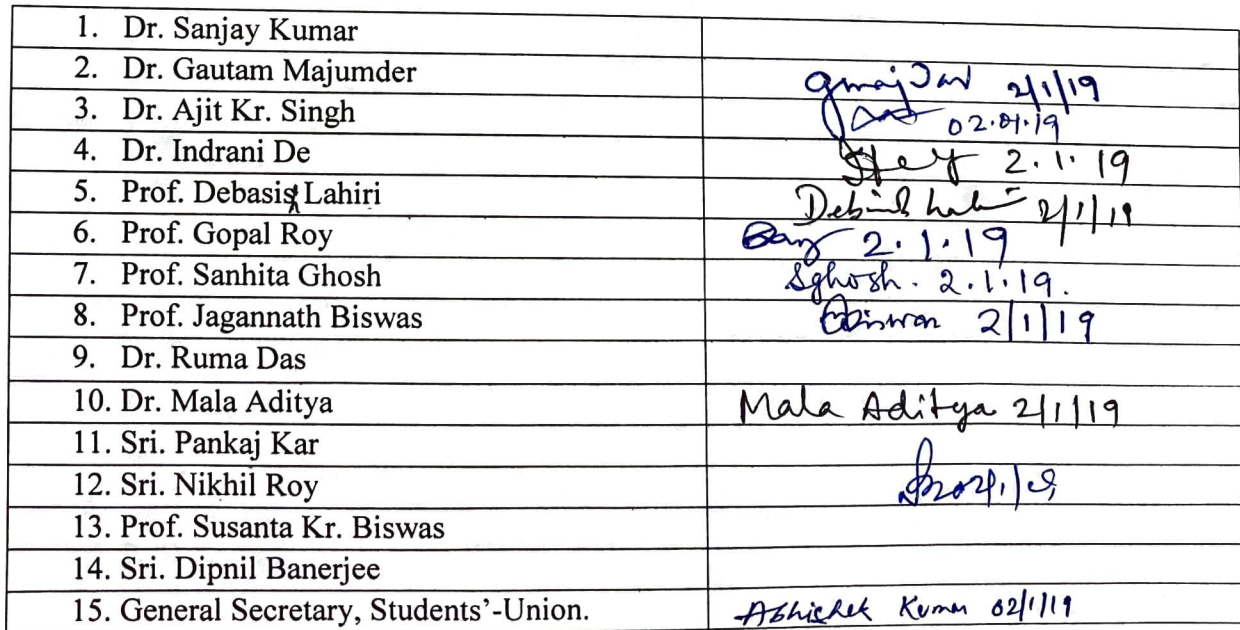 1. Dr. Sanjay Kumar
2. Dr. Gautam Majumder 2/1/19
3. Dr. Ajit Kr. Singh 02.01.19
4. Dr. Indrani De 2.1.19
5. Prof. Debasis Lahiri 2/1/19
6. Prof. Gopal Roy 2.1.19
7. Prof. Sanhita Ghosh Sghosh. 2.1.19.
8. Prof. Jagannath Biswas 2/1/19
9. Dr. Ruma Das
10. Dr. Mala Aditya Mala Aditya 2/1/19
11. Sri. Pankaj Kar
12. Sri. Nikhil Roy
13. Prof. Susanta Kr. Biswas
14. Sri. Dipnil Banerjee
15. General Secretary, Students'-Union. Abhishek Kumar 02/1/19